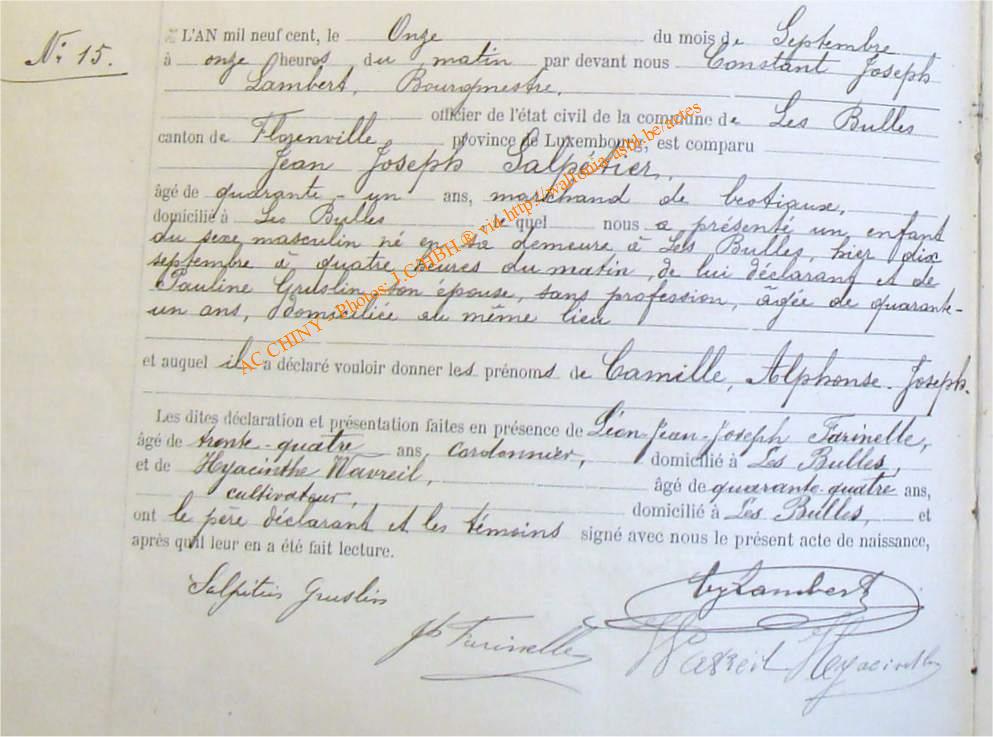 N° 15.
L'AN mil neuf cent, le Onze du mois de Septembre
à onze heures du matin par devant nous Constant Joseph
Lambert, Bourgmestre,
officier de l'état civil de la commune de Les Bulles
canton de Florenville, province de Luxembourg, est comparu
Jean Joseph Salpétier,
âgé de quarante-un ans, marchand de bestiaux,
domicilié à Les Bulles lequel nous a présenté un enfant
du sexe masculin né en sa demeure à Les Bulles, hier dix
septembre à quatre heures du matin, de lui déclarant et de
Pauline Gruslin son épouse, sans profession, âgée de quarante-
un ans, domiciliée au même lieu
et auquel il a déclaré vouloir donner les prénoms de Camille, Alphonse-Joseph.
Les dites déclaration et présentation faites en présence de Léon-Jean-Joseph Farinelle,
âgé de trente-quatre ans, cordonnier, domicilié à Les Bulles,
et de Hyacinthe Wavreil, âgé de quarante-quatre ans,
cultivateur, domicilié à Les Bulles, et
ont le père déclarant et les témoins signé avec nous le présent acte de naissance,
après qu'il leur en a été fait lecture.
Salpétier Gruslin
CJLambert
Farinelle
Hyacinthe
AC CHINY - Photos: J.C.HBH.® via http://avalfonia-asbl.be/actes